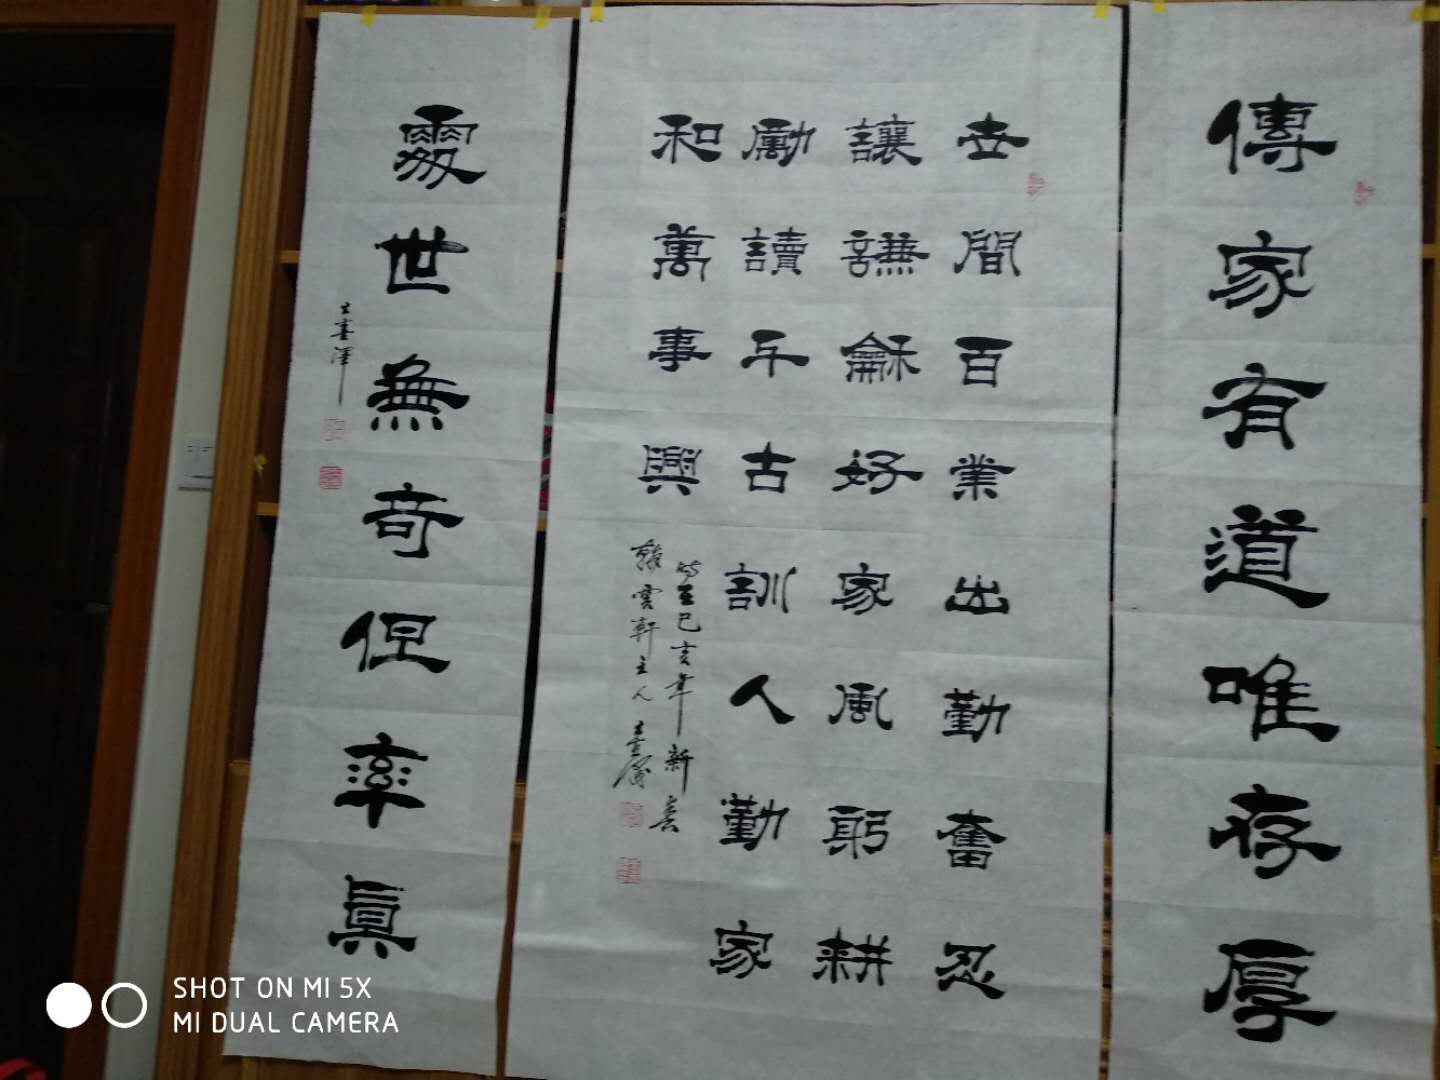 傳家有道唯存厚
世間百業出勤奮忍
讓謙龢好家風躬耕
勵讀千古訓人勤家
和萬事興
時至己亥年新春
翰雲軒主人
處世無奇但率眞
SHOT ON MI 5X
MI DUAL CAMERA